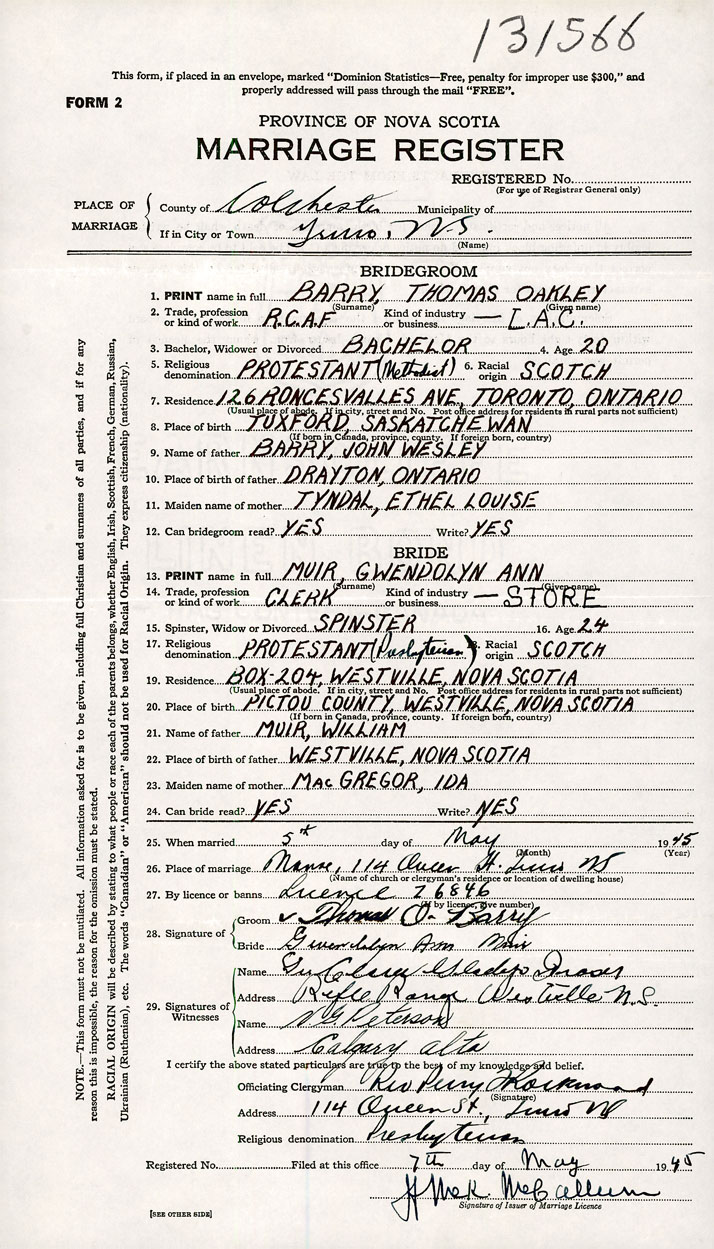 131566
This form, if placed in an envelope, marked "Dominion Statistics—Free, penalty for improper use $300," and
properly addressed will pass through the mail "FREE".
FORM 2
PROVINCE OF NOVA SCOTIA
MARRIAGE REGISTER
REGISTERED No.
(For use of Registrar General only)
PLACE OF MARRIAGE
County of Colchester Municipality of
If in City or Town Truro, N.S.
(Name)
BRIDEGROOM
1. PRINT name in full BARRY, THOMAS OAKLEY
(Surname) (Given name)
2. Trade, profession or kind of work R.C.A.F Kind of industry or business — L.A.C.
3. Bachelor, Widower or Divorced BACHELOR 4. Age 20
5. Religious denomination PROTESTANT (Methodist) 6. Racial origin SCOTCH
7. Residence 126 RONCESVALLES AVE, TORONTO, ONTARIO
(Usual place of abode. If in city, street and No. Post office address for residents in rural parts not sufficient)
8. Place of birth TUXFORD, SASKATCHEWAN
(If born in Canada, province, county. If foreign born, country)
9. Name of father BARRY, JOHN WESLEY
10. Place of birth of father DRAYTON, ONTARIO
11. Maiden name of mother TYNDAL, ETHEL LOUISE
12. Can bridegroom read? YES Write? YES
BRIDE
13. PRINT name in full MUIR, GWENDOLYN ANN
(Surname) (Given name)
14. Trade, profession or kind of work CLERK Kind of industry or business — STORE
15. Spinster, Widow or Divorced SPINSTER 16. Age 24
17. Religious denomination PROTESTANT (Presbyterian) 8. Racial origin SCOTCH
19. Residence BOX-204, WESTVILLE, NOVA SCOTIA
(Usual place of abode. If in city, street and No. Post office address for residents in rural parts not sufficient)
20. Place of birth PICTOU COUNTY, WESTVILLE, NOVA SCOTIA
(If born in Canada, province, county. If foreign born, country)
21. Name of father MUIR, WILLIAM
22. Place of birth of father WESTVILLE, NOVA SCOTIA
23. Maiden name of mother MACGREGOR, IDA
24. Can bride read? YES Write? YES
25. When married 5th day of May 1945
(Month) (Year)
26. Place of marriage Manse, 114 Queen St. Truro NS
(Name of church or clergyman's residence or location of dwelling house)
27. By licence or banns Licence 26846
(If by licence, give number)
28. Signature of
Groom Thomas O. Barry
Bride Gwendolyn Ann Muir
29. Signatures of Witnesses
Name Gladys Fraser
Address Rifle Range Westville N.S.
Name Peterson
Address Calgary Alta
I certify the above stated particulars are true to the best of my knowledge and belief.
Officiating Clergyman Rev Perry Rockwood
(Signature)
Address 114 Queen St., Truro NS
Religious denomination Presbyterian
Registered No. Filed at this office 7th day of May 1945
McCallum
Signature of Issuer of Marriage Licence
[SEE OTHER SIDE]
NOTE.—This form must not be mutilated. All information asked for is to be given, including full Christian and surnames of all parties, and if for any
reason this is impossible, the reason for the omission must be stated.
RACIAL ORIGIN will be described by stating to what people or race each of the parents belongs, whether English, Irish, Scottish, French, German, Russian,
Ukrainian (Ruthenian), etc. The words "Canadian" or "American" should not be used for Racial Origin. They express citizenship (nationality).